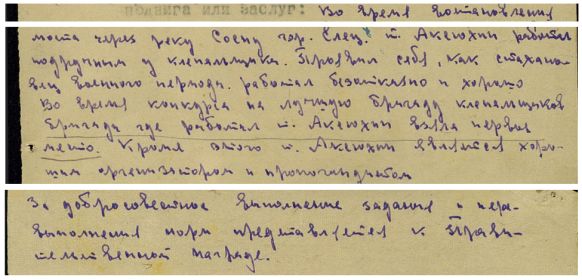 подвига или заслуг: Во время востановления
моста через реку Сосну гор. Елец. т. Аксюхин работал
подручным у клепальщика. Проявил себя, как стахано-
вец военного периода. работал безотказно и хорошо
Во время конкурса на лучшую бригаду клепальщиков
бригада где работал т. Аксюхин взяла первое
место. Кроме этого т. Аксюхин является хоро-
шим организатором и пропогандистом
За добросовестное выполнение задания и пере-
выполнения норм представляется к Прави-
тельственной награде.